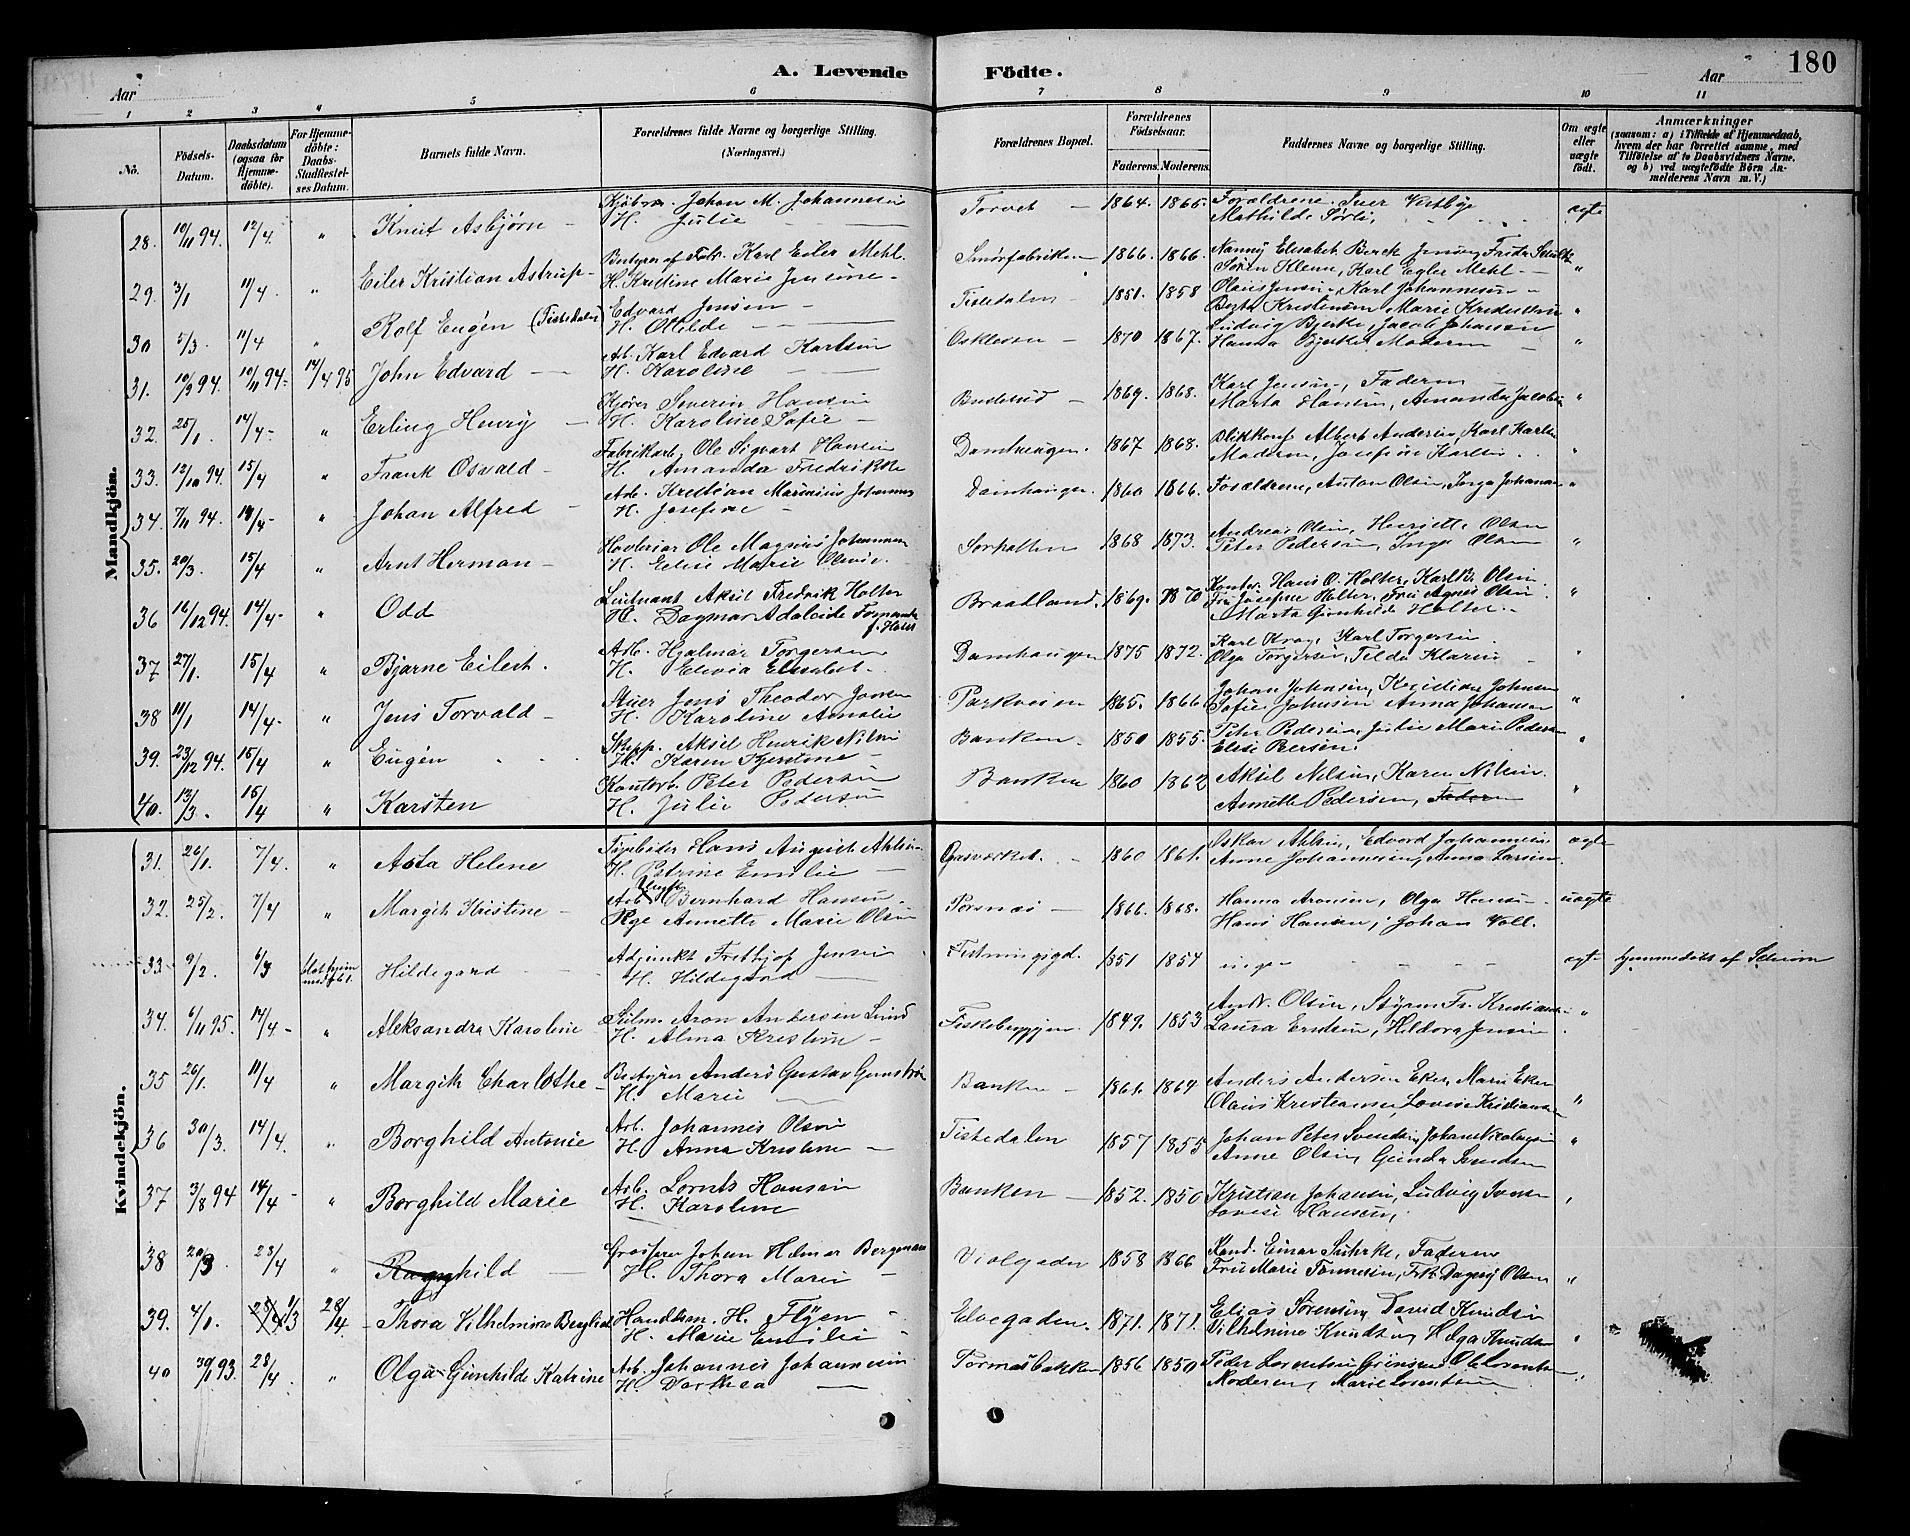 A. Levende Fødte.
180
Aar
Aar
1 2 3 4 5 6 7 8 9 10 11
No.
Födsels-Datum.
Daabsdatum (ogsaa for Hjemmedöbte).
For Hjemmedöbte: Daabs-Stadfæstelses Datum.
Barnets fulde Navn.
Forældrenes fulde Navne og borgerlige Stilling. (Næringsvei.)
Forældrenes Bopæl.
Forældrenes Födselsaar.
Faderens. Moderens.
Faddernes Navne og borgerlige Stilling.
Om ægte eller uægte födt.
Anmærkninger (saasom: a) i Tilfælde af Hjemmedaab, hvem der har forrettet samme, med Tilföielse af to Daabsvidners Navne. og b) ved uægtefödte Börn Anmelderens Navn m. V.)
Mandkjön.
28. 10/11 94. 12/4. " Knut Asbjørn Kjøbm. Johan M. Johannesen H. Julie Torvet 1864. 1865. Forældrene, Iver Vestbye Mathilde Sørli, ægte
29. 3/1 11/4 " Eiler Kristian Astrup Bestyrer af Fabr. Karl Eiler Mehl. H. Kristine Marie Jensine Smørfabriken 1866. 1866. Nanny Elisabet Berck Jensen, Frida Søren Klem, Karl Egler Mehl "
30 5/3. 11/4 " Rolf Eugén (Tistedalen) Edvard Jensen H. Otilde Tistedalen 1851. 1858 Olaus Jensen, Karl Johannesen Berta Kristensen Marie Kristensen "
31. 10/9 94. 10/11 94. 14/4 95 John Edvard Arb. Karl Edvard Karlsen H. Karoline 1870 1867. Ludvig Bjerke, Jacob Johansen Hanna Bjerke Moderen "
32. 25/1. 14/4 " Erling Henry Kjører Severin Hansen H. Karoline Sofie 1869. 1868. Karl Jensen, Faderen Marta Hansen, Amanda Jacobsen "
33. 12/10 94. 15/4 " Frank Osvald Fabrikarb. Ole Sigvart Hansen H. Amanda Fredrikke Damhaugen. 1867 1868. Albert Andersen, Karl Karlsen Moderen, Josefine Karlsen "
34. 7/11 94. 14/4 " Johan Alfred Arb. Kristian Marinius Johannes H. Josefine Damhaugen. 1860 1866. Forældrene, Anton Olsen, Inga Johansen "
35. 20/3. 15/4 " Arnt Herman Høvleriar. Ole Magnus Johannesen H. Eline Marie Olsen Sorhalten 1868 1873. Andreas Olsen, Henriette Olsen Peter Pedersen, Inga Olsen "
36 16/12 94. 14/4 " Odd Leutnant Aksel Fredrik Holter H. Dagmar Adaleide f. Holst Braatland. 1869. 1870 Kontor. Hans O. Holter, Karl B. Olsen Fru Josefine Holter, Fru Agnes Olsen, Marta Gunhilde Holter "
37 27/1. 15/4 " Bjarne Eilert. Arb. Hjalmar Torgersen H. Elevia Elisabet Damhaugen 1875 1872. Karl Krag, Karl Torgersen Olga Torgersen, Tilda Klarin "
38 11/1 14/4 " Jens Torvald Stuer Jens Theodor Jansen H. Karoline Amalie Parkveien 1865. 1866 Johan Johnsen, Kristian Johnsen Sofie Johnsen Anna Johansen "
39. 23/12 94. 15/4 " Eugén Skipp. Aksel Henrik Nilsen H. Karen Kjerstine Banken 1850 1855. Peter Pedersen, Julie Marie Pedersen Elise Bersen. "
40. 13/3. 16/4 " Karsten Kontorb. Peter Pedersen H. Julie Pedersen Banken 1860 1862 Aksel Nilsen, Karen Nilsen. Annette Pedersen, Faderen "
Kvindekjön.
31. 26/1. 7/4. " Asta Helene Hans August Ahlsen H. Petrine Emilie Gasværket. 1860 1861. Oskar Ahlsen, Edvard Johannesen Anne Johannesen, Anna Larsen ægte
32. 25/2. 7/4 " Margit Kristine Arb. Ungk. Bernhard Hansen Pige Annette Marie Olsen Torsnæs 1866. 1868. Hanna Aronsen, Olga Hansen Hans Hansen, Johan Voll. uægte
33. 9/2. 6/3 Hildegard Adjunkt Frethjof Jensen H. Hildegard Fistningsgd. 1851 1854 ingen ægte hjemmedøbt af
34. 6/11 95. 14/4 " Aleksandra Karoline Seilm. Aron Andersen Lund H. Alma Kristine Fiskebryggen. 1849. 1853 Andr. Olsen, Styrm. Fr. Kristiansen Laura Erntsen, Hildora Jensen "
35 26/1. 11/4 " Margith Charlotthe Bestyrer Anders Gustav H. Marie Banken 1861. 1864 Anders Andersen Eker, Marie Eker Olaus Kristiansen, Lovise Kristiansen "
36 30/3. 14/4. " Borghild Antonie Arb. Johannes Olsen H. Anna Kristine Tistedalen 1857 1855 Johan Peter Svendsen, Anne Olsen, Gunda Svendsen "
37 3/8 94 14/4 " Borghild Marie Arb. Lornts Hansen H. Karoline Banken 1852. 1850 Kristian Johansen, Ludvig Ivense Lovise Hansen, "
38 20/3. 23/4 " Ragnhild Grosserer Johan Helmer Bergman H. Thora Marie Violgaden 1858 1866 Kand. Einar Suhrke, Faderen Fru Marie Tønnesen, Frk. Dagny Olsen "
39. 4/1. 4/3 28/4 Thora Vilhelmine Berglioth Handelsm. H. Flyen H. Marie Emilie Elvegaden. 1871. 1871. Elias Sørensen, David Knudsen Vilhelmine Knudsen, Helga Knudsen "
40 30/1 93. 23/4 " Olga Gunhilde Katrine Arb. Johannes Johannesen H. Dorthea Tormasbakken 1856 1850 Peder Lorentsen Moderen, Marie Lorentsen "